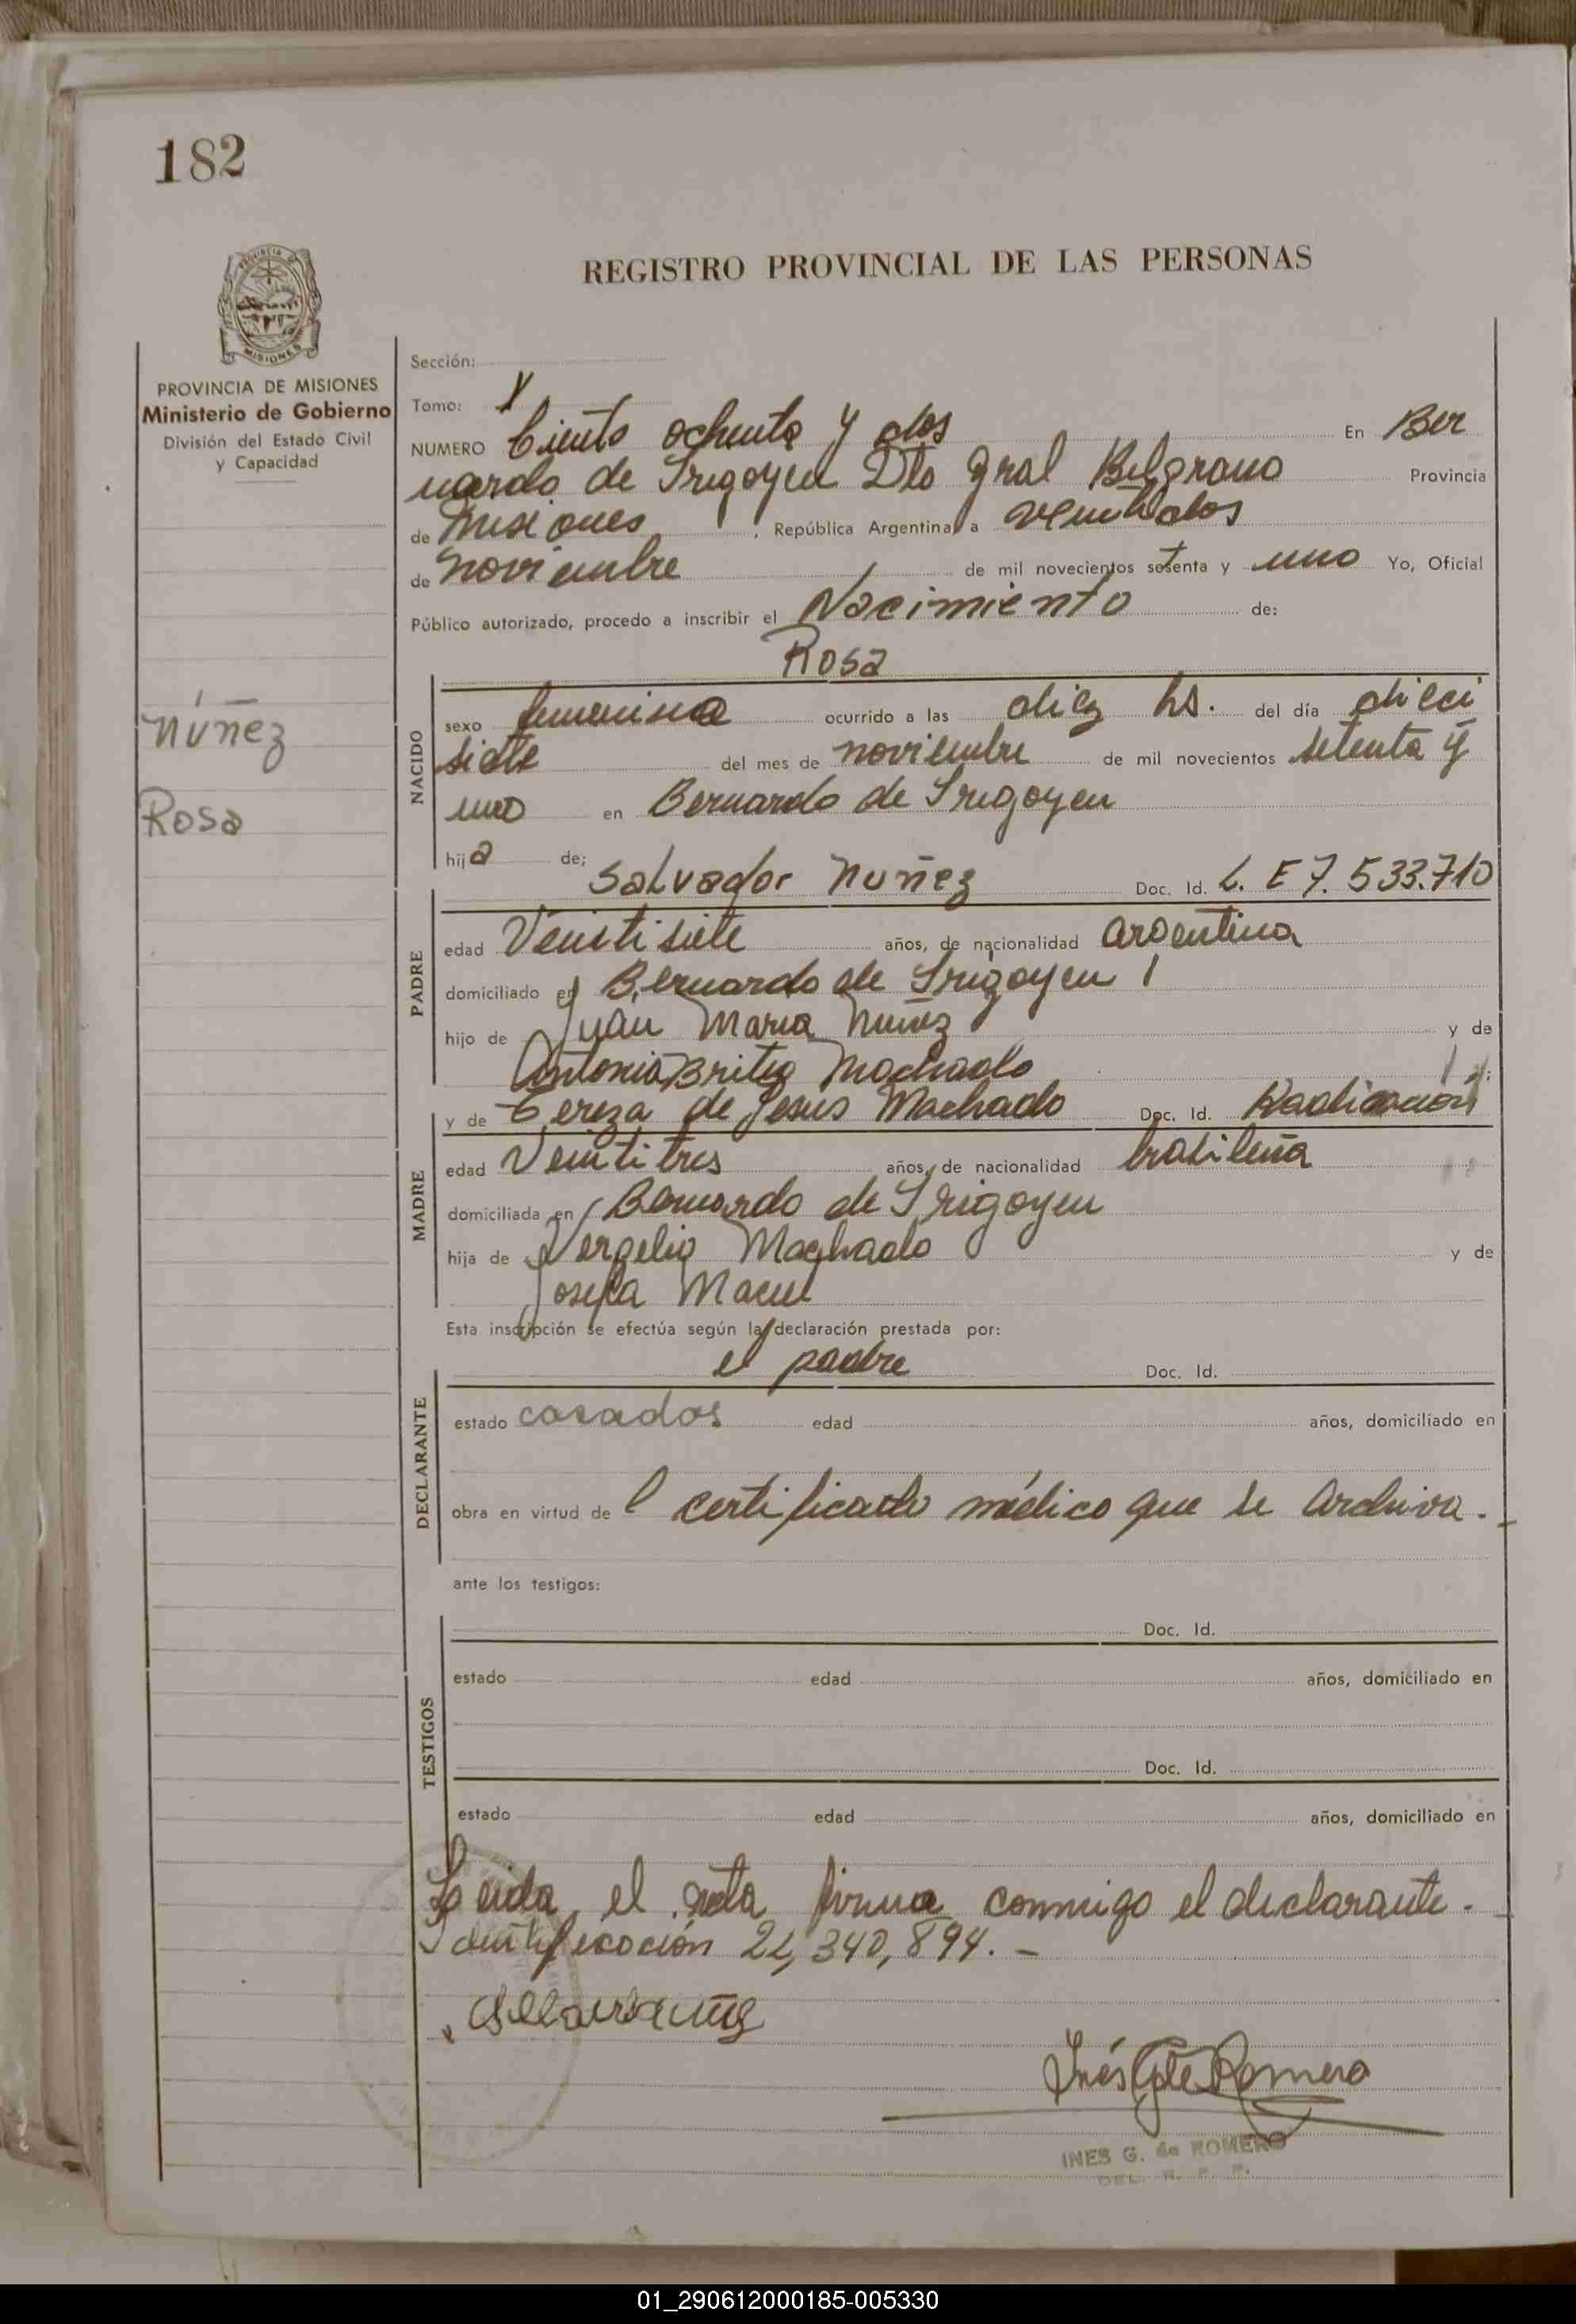 182
REGISTRO PROVINCIAL DE LAS PERSONAS
MISIONES
PROVINCIA DE MISIONES
Ministerio de Gobierno
División del Estado Civil
y Capacidad
Núñez
Rosa
Sección:
Tomo: X
NUMERO Ciento ochenta y dos En Ber
nardo de Irigoyen Dto Gral Belgrano Provincia
de Misiones, República Argentina, a veintidos
de noviembre de mil novecientos setenta y uno Yo, Oficial
Público autorizado, procedo a inscribir el Nacimiento de:
Rosa
NACIDO
sexo femenina ocurrido a las diez hs. del día dieci
siete del mes de noviembre de mil novecientos setenta y
uno en Bernardo de Irigoyen
hija de; Salvador Nuñez Doc. Id. L. E 7.533.710
PADRE
edad Veintisiete años, de nacionalidad argentina
domiciliado en Bernardo de Irigoyen
hijo de Juan Maria Nuñez y de
Antonia Britez Machado
y de Tereza de Jesus Machado Doc. Id. Radicación
MADRE
edad Veintitres años, de nacionalidad brasileña
domiciliada en Bernardo de Irigoyen
hija de Vergelio Machado y de
Josefa Maciel
Esta inscripción se efectúa según la declaración prestada por:
el padre Doc. Id.
DECLARANTE
estado casados edad años, domiciliado en
obra en virtud de l certificado médico que se archiva.-
ante los testigos:
Doc. Id.
TESTIGOS
estado edad años, domiciliado en
Doc. Id.
estado edad años, domiciliado en
Leida el acta firma conmigo el declarante.-
Identificación 22,340,894.-
Inés G de Romero
INES G. de ROMERO
DEL. R. P. P.
01_290612000185-005330